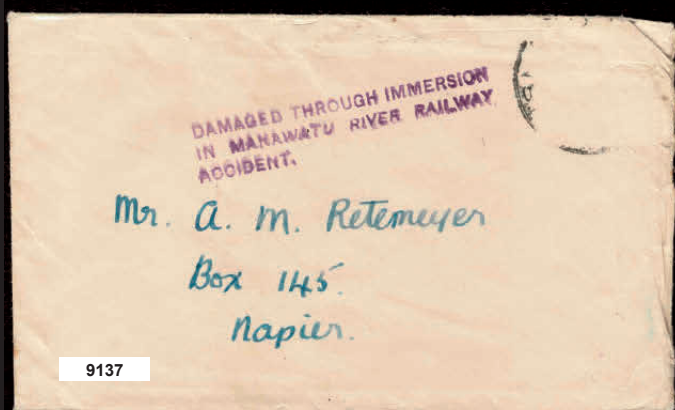 DAMAGED THROUGH IMMERSION
IN MANAWATU RIVER RAILWAY
ACCIDENT.
Mr. A. M. Retemeyer
Box 145.
Napier.
9137